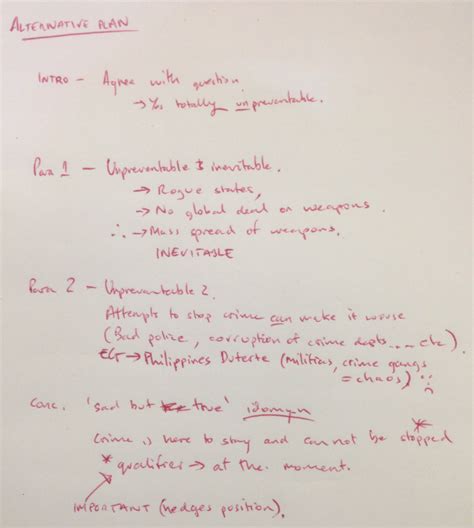 ALTERNATIVE PLAN
INTRO - Agree with question
→ Yes totally unpreventable.
Para 1 - Unpreventable & inevitable.
→ Rogue states,
→ No global deal on weapons.
∴ → Mass spread of weapons.
INEVITABLE
Para 2 - Unpreventable 2.
Attempts to stop crime can make it worse
(Bad police, corruption of crime depts... etc).
EG → Philippines Duterte (Militias, crime gangs
= chaos)
Conc. 'sad but true' idiom
Crime is here to stay and cannot be stopped *
* qualifier → at the moment.
IMPORTANT (hedges position).